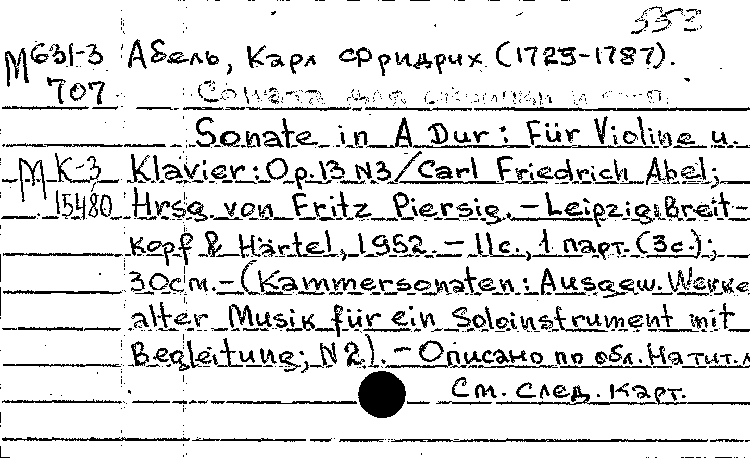 553
М631-3 Абель, Карл Фридрих (1723-1787).
707 Соната для скрипки и
Sonate in A Dur: Für Violine u.
М К-3 Klavier: Op.13 N3/Carl Friedrich Abel;
15480 Hrsg. von Fritz Piersig. – Leipzig: Breit-
kopf & Härtel, 1952. – 11с., 1 парт. (3с.);
30см. – (Kammersonaten: Ausgew. Werke
alter Musik für ein Soloinstrument mit
Begleitung; N2). – Описано по обл. На тит. л
См. след. карт.